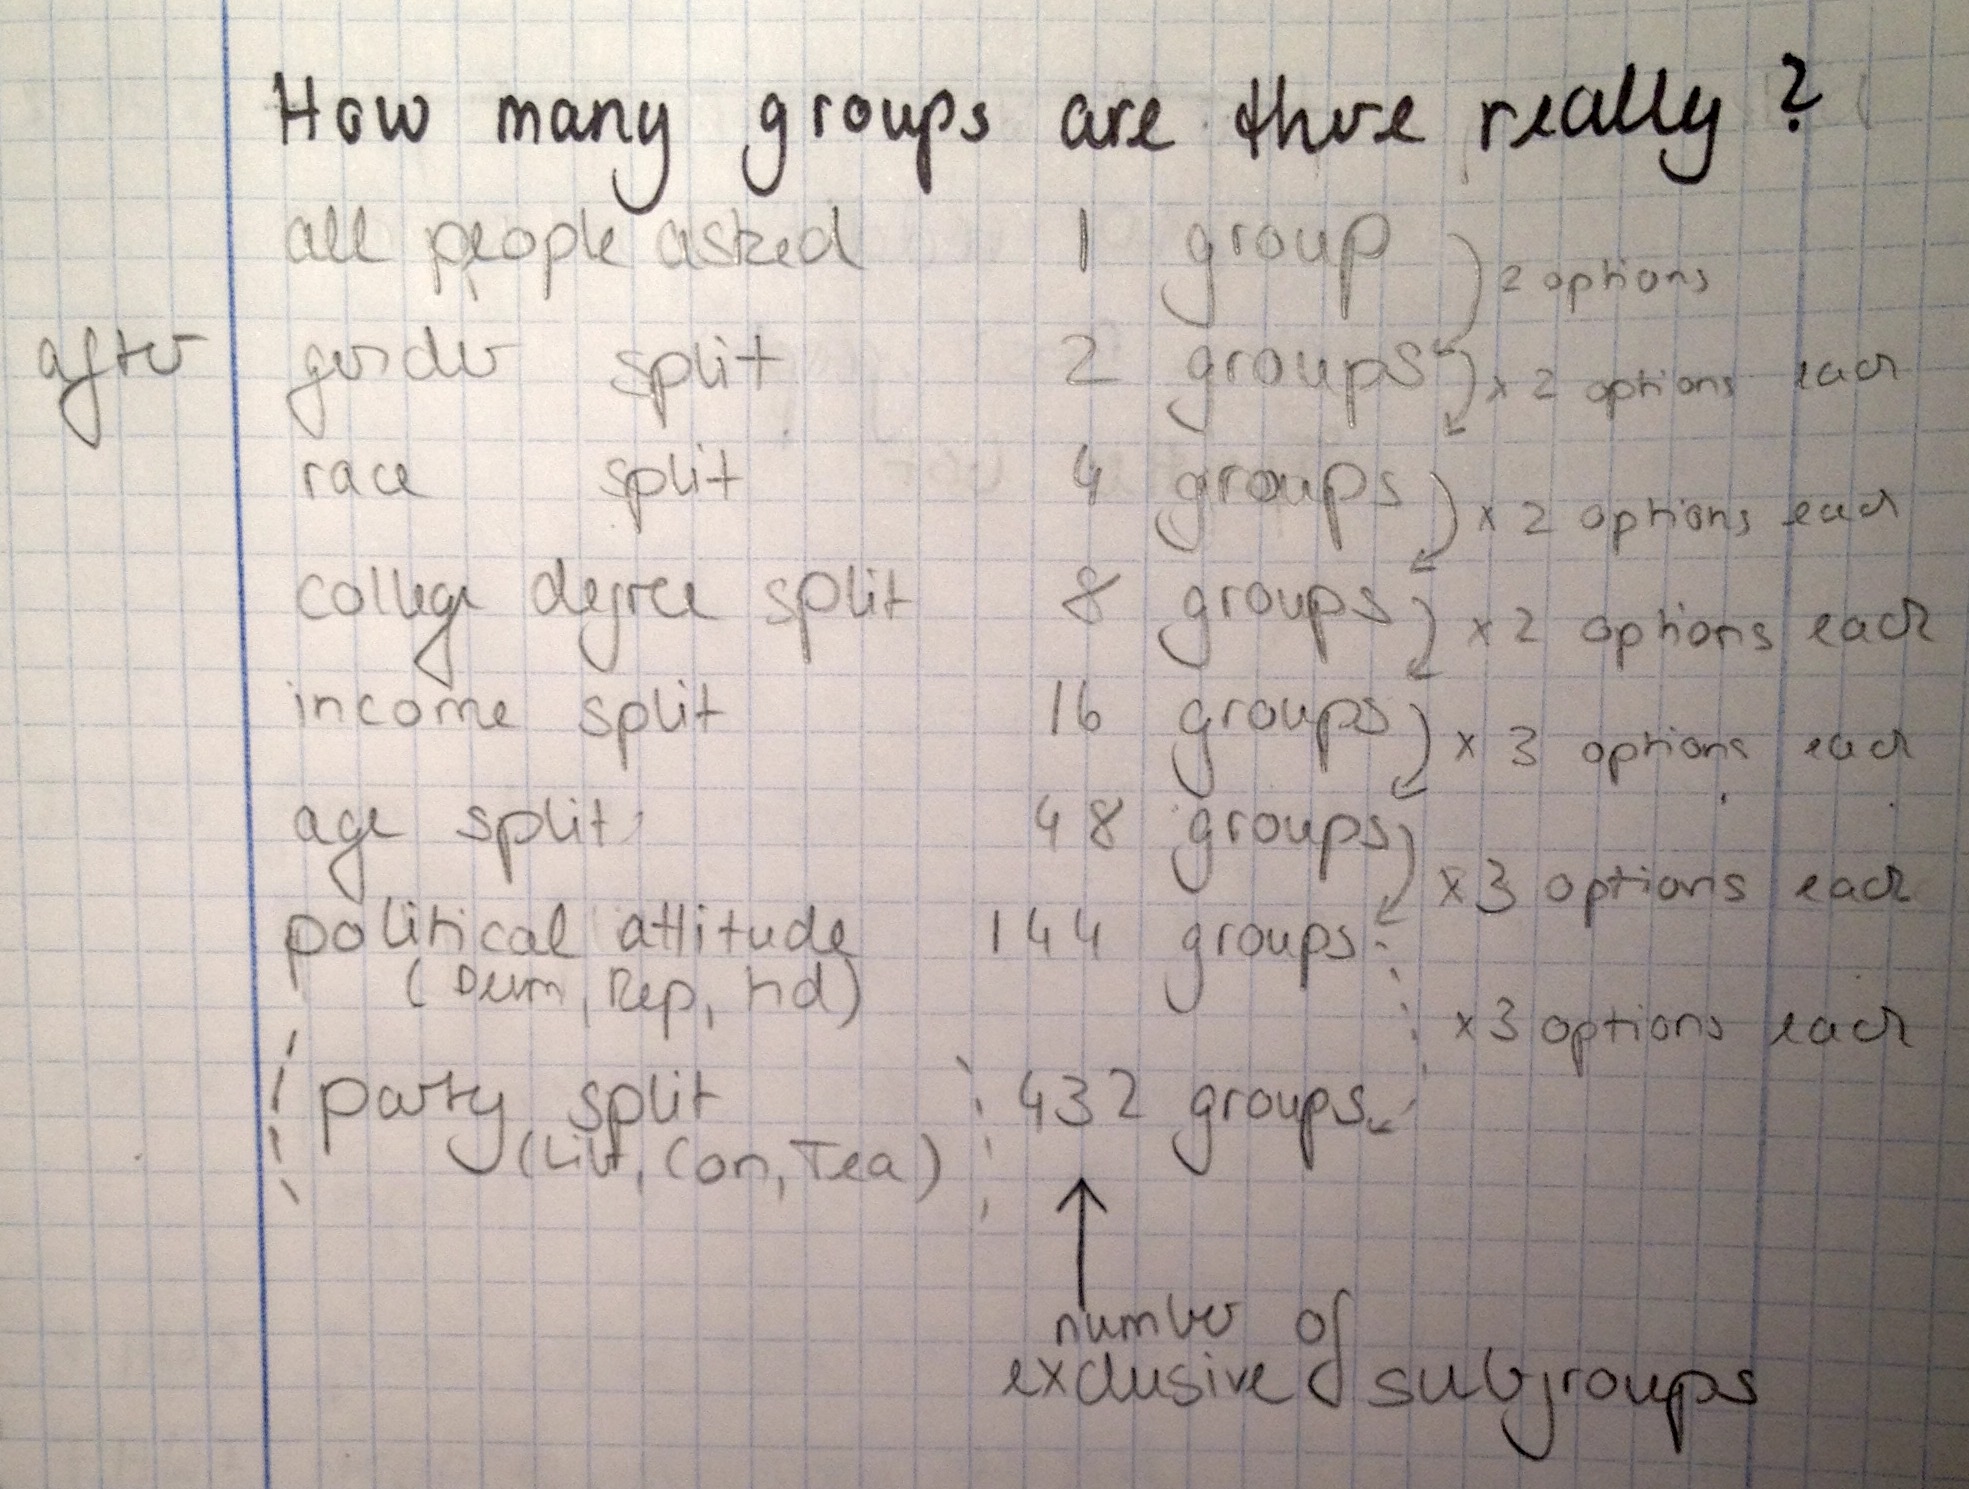 How many groups are there really?
all people asked 1 group
2 options
after gender split 2 groups
x 2 options each
race split 4 groups
x 2 options each
college degree split 8 groups
x 2 options each
income split 16 groups
x 3 options each
age split 48 groups
x 3 options each
political attitude 144 groups
(Dem, Rep, Ind)
x 3 options each
party split 432 groups
(Lib, Con, Tea)
number of
exclusive subgroups